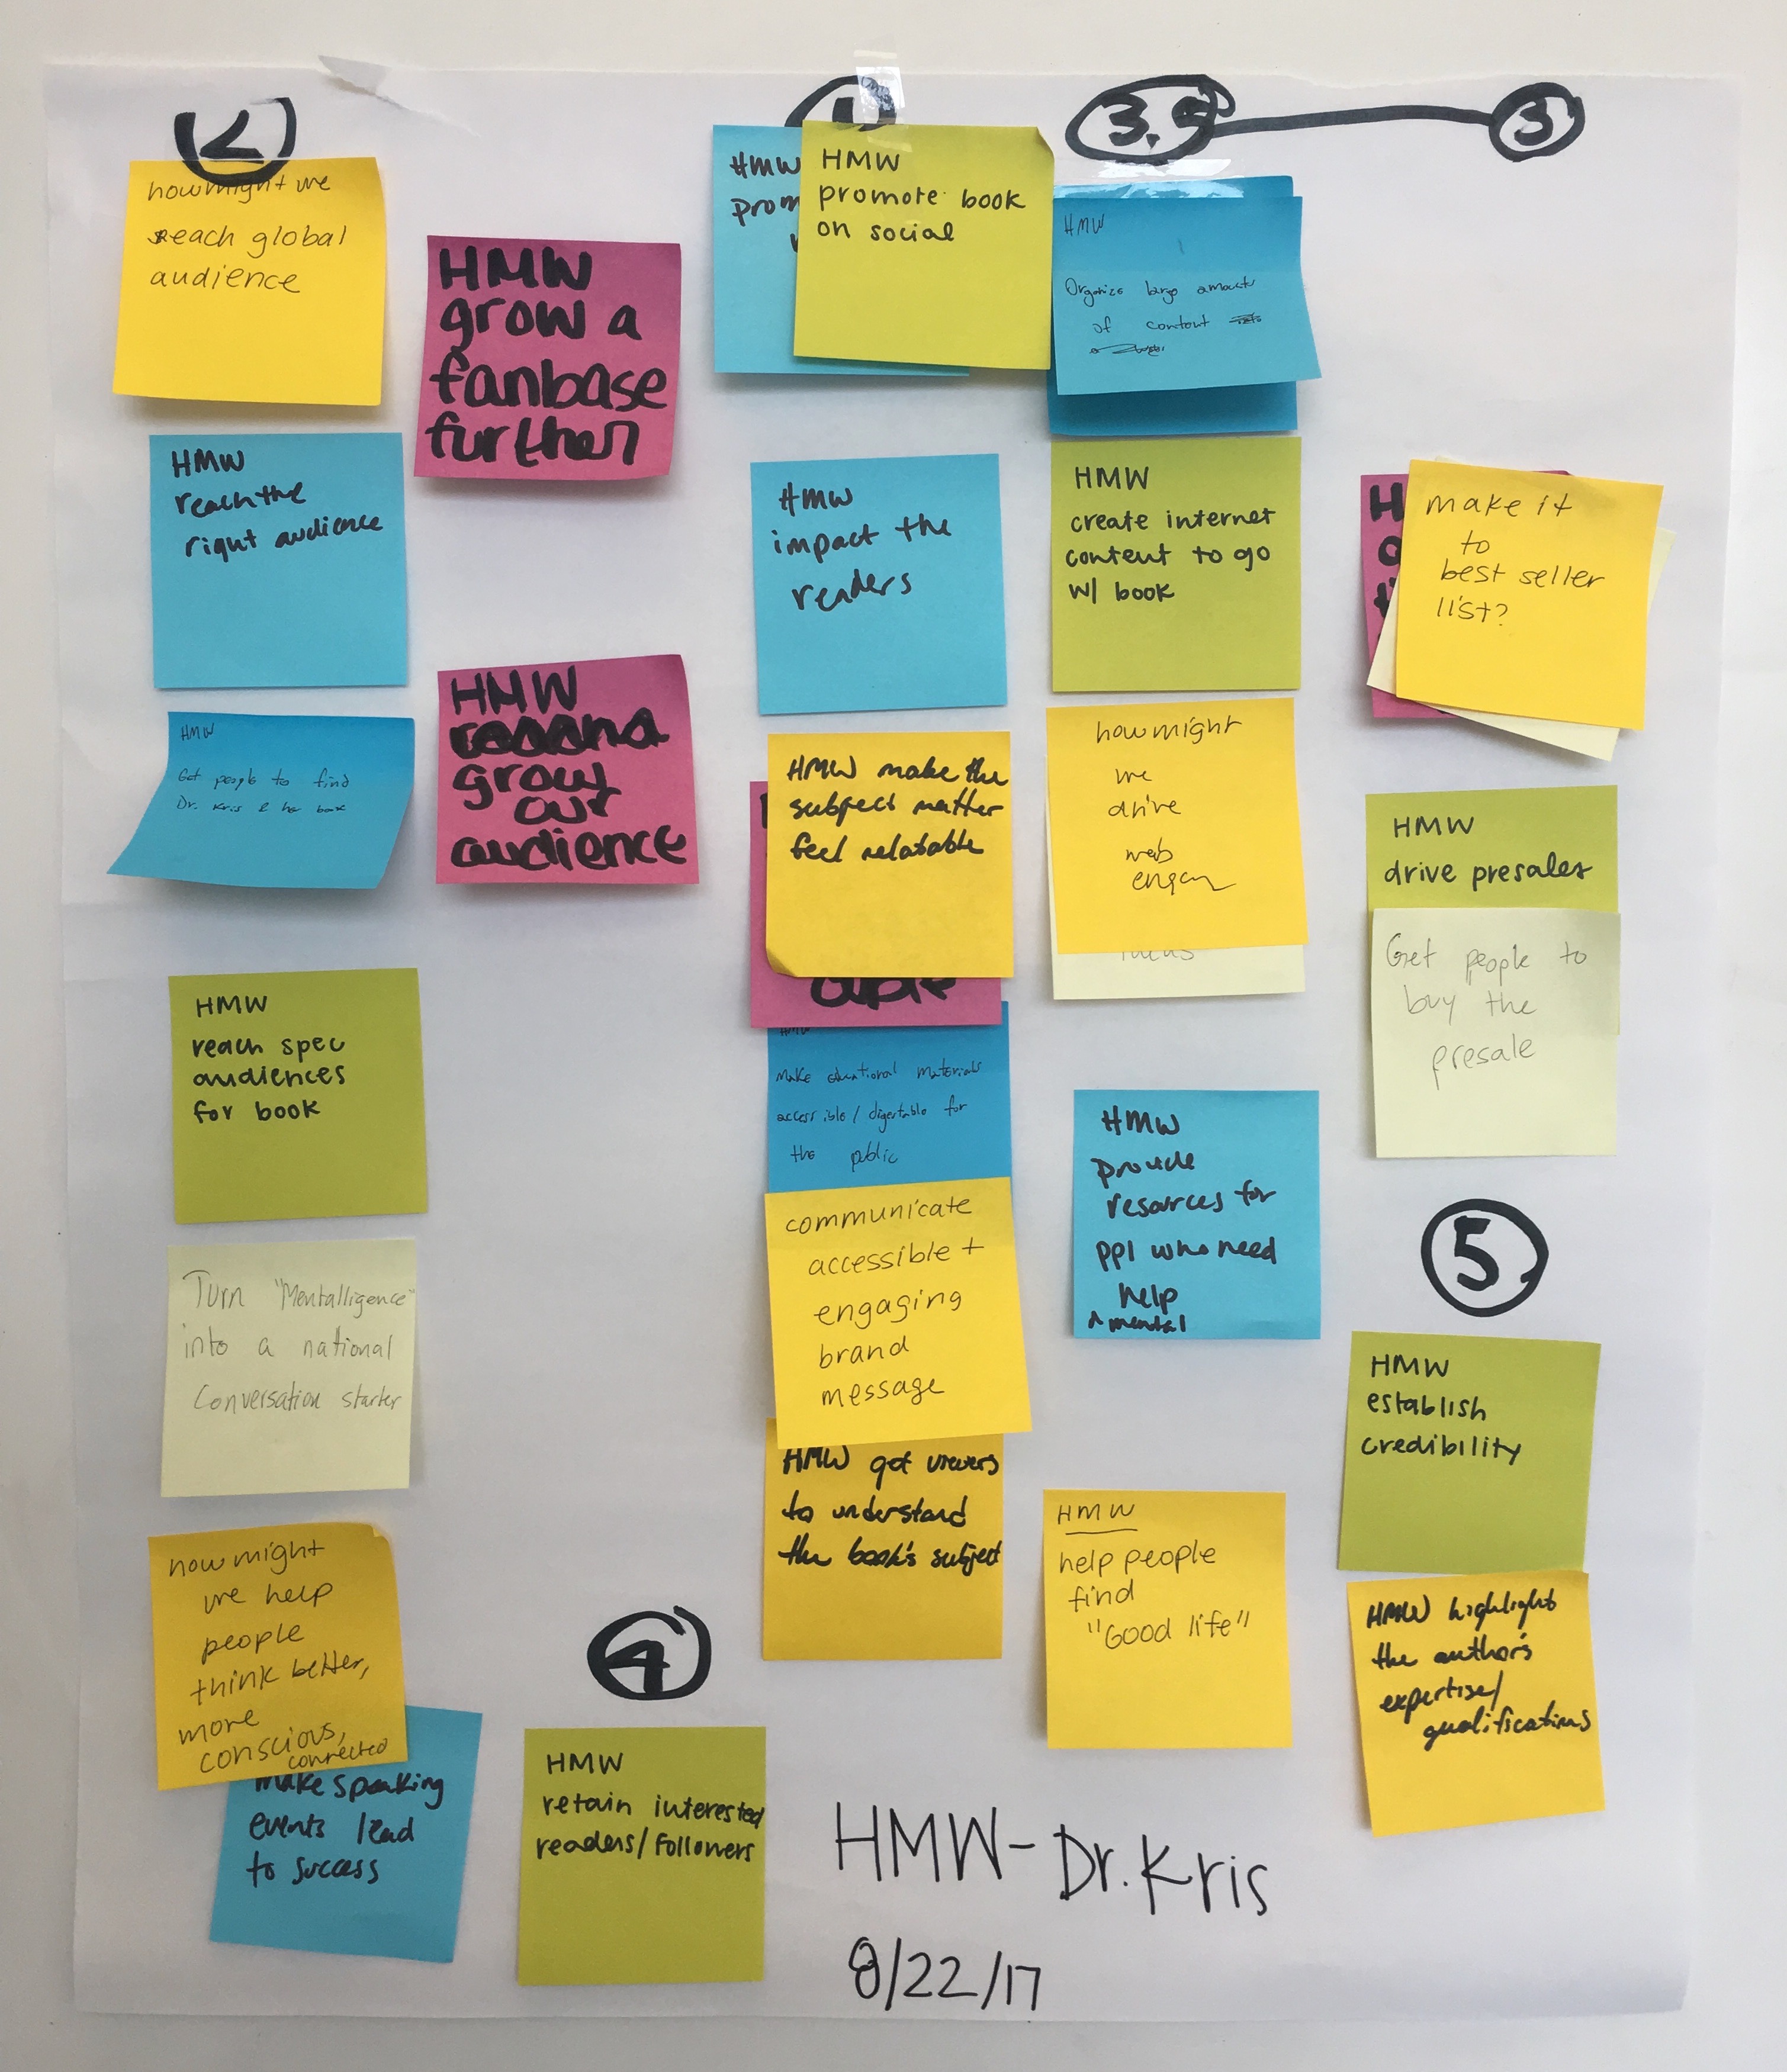 2
how might we
reach global
audience
HMW
reach the
right audience
HMW
Get people to find
Dr. Kris & her book
HMW
reach spec
audiences
for book
Turn "Mentalligence"
into a national
Conversation starter
how might
we help
people
think better,
more
conscious,
connected
make speaking
events lead
to success
HMW
grow a
fanbase
further
HMW
grow
our
audience
4
HMW
retain interested
readers/followers
1
HMW
prom
HMW
promote book
on social
HMW
impact the
readers
HMW make the
subject matter
feel relatable
able
HMW
Make educational materials
accessible/digestable for
the public
communicate
accessible +
engaging
brand
message
HMW get viewers
to understand
the book's subject
3.5
HMW
Organize large amounts
of content
HMW
create internet
content to go
w/ book
how might
we
drive
web
HMW
provide
resources for
ppl who need
help
^ mental
HMW
help people
find
"Good life"
3
H
make it
to
best seller
list?
HMW
drive presales
Get people to
buy the
presale
5.
HMW
establish
credibility
HMW highlight
the author's
expertise/
qualifications
HMW - Dr. Kris
8/22/17